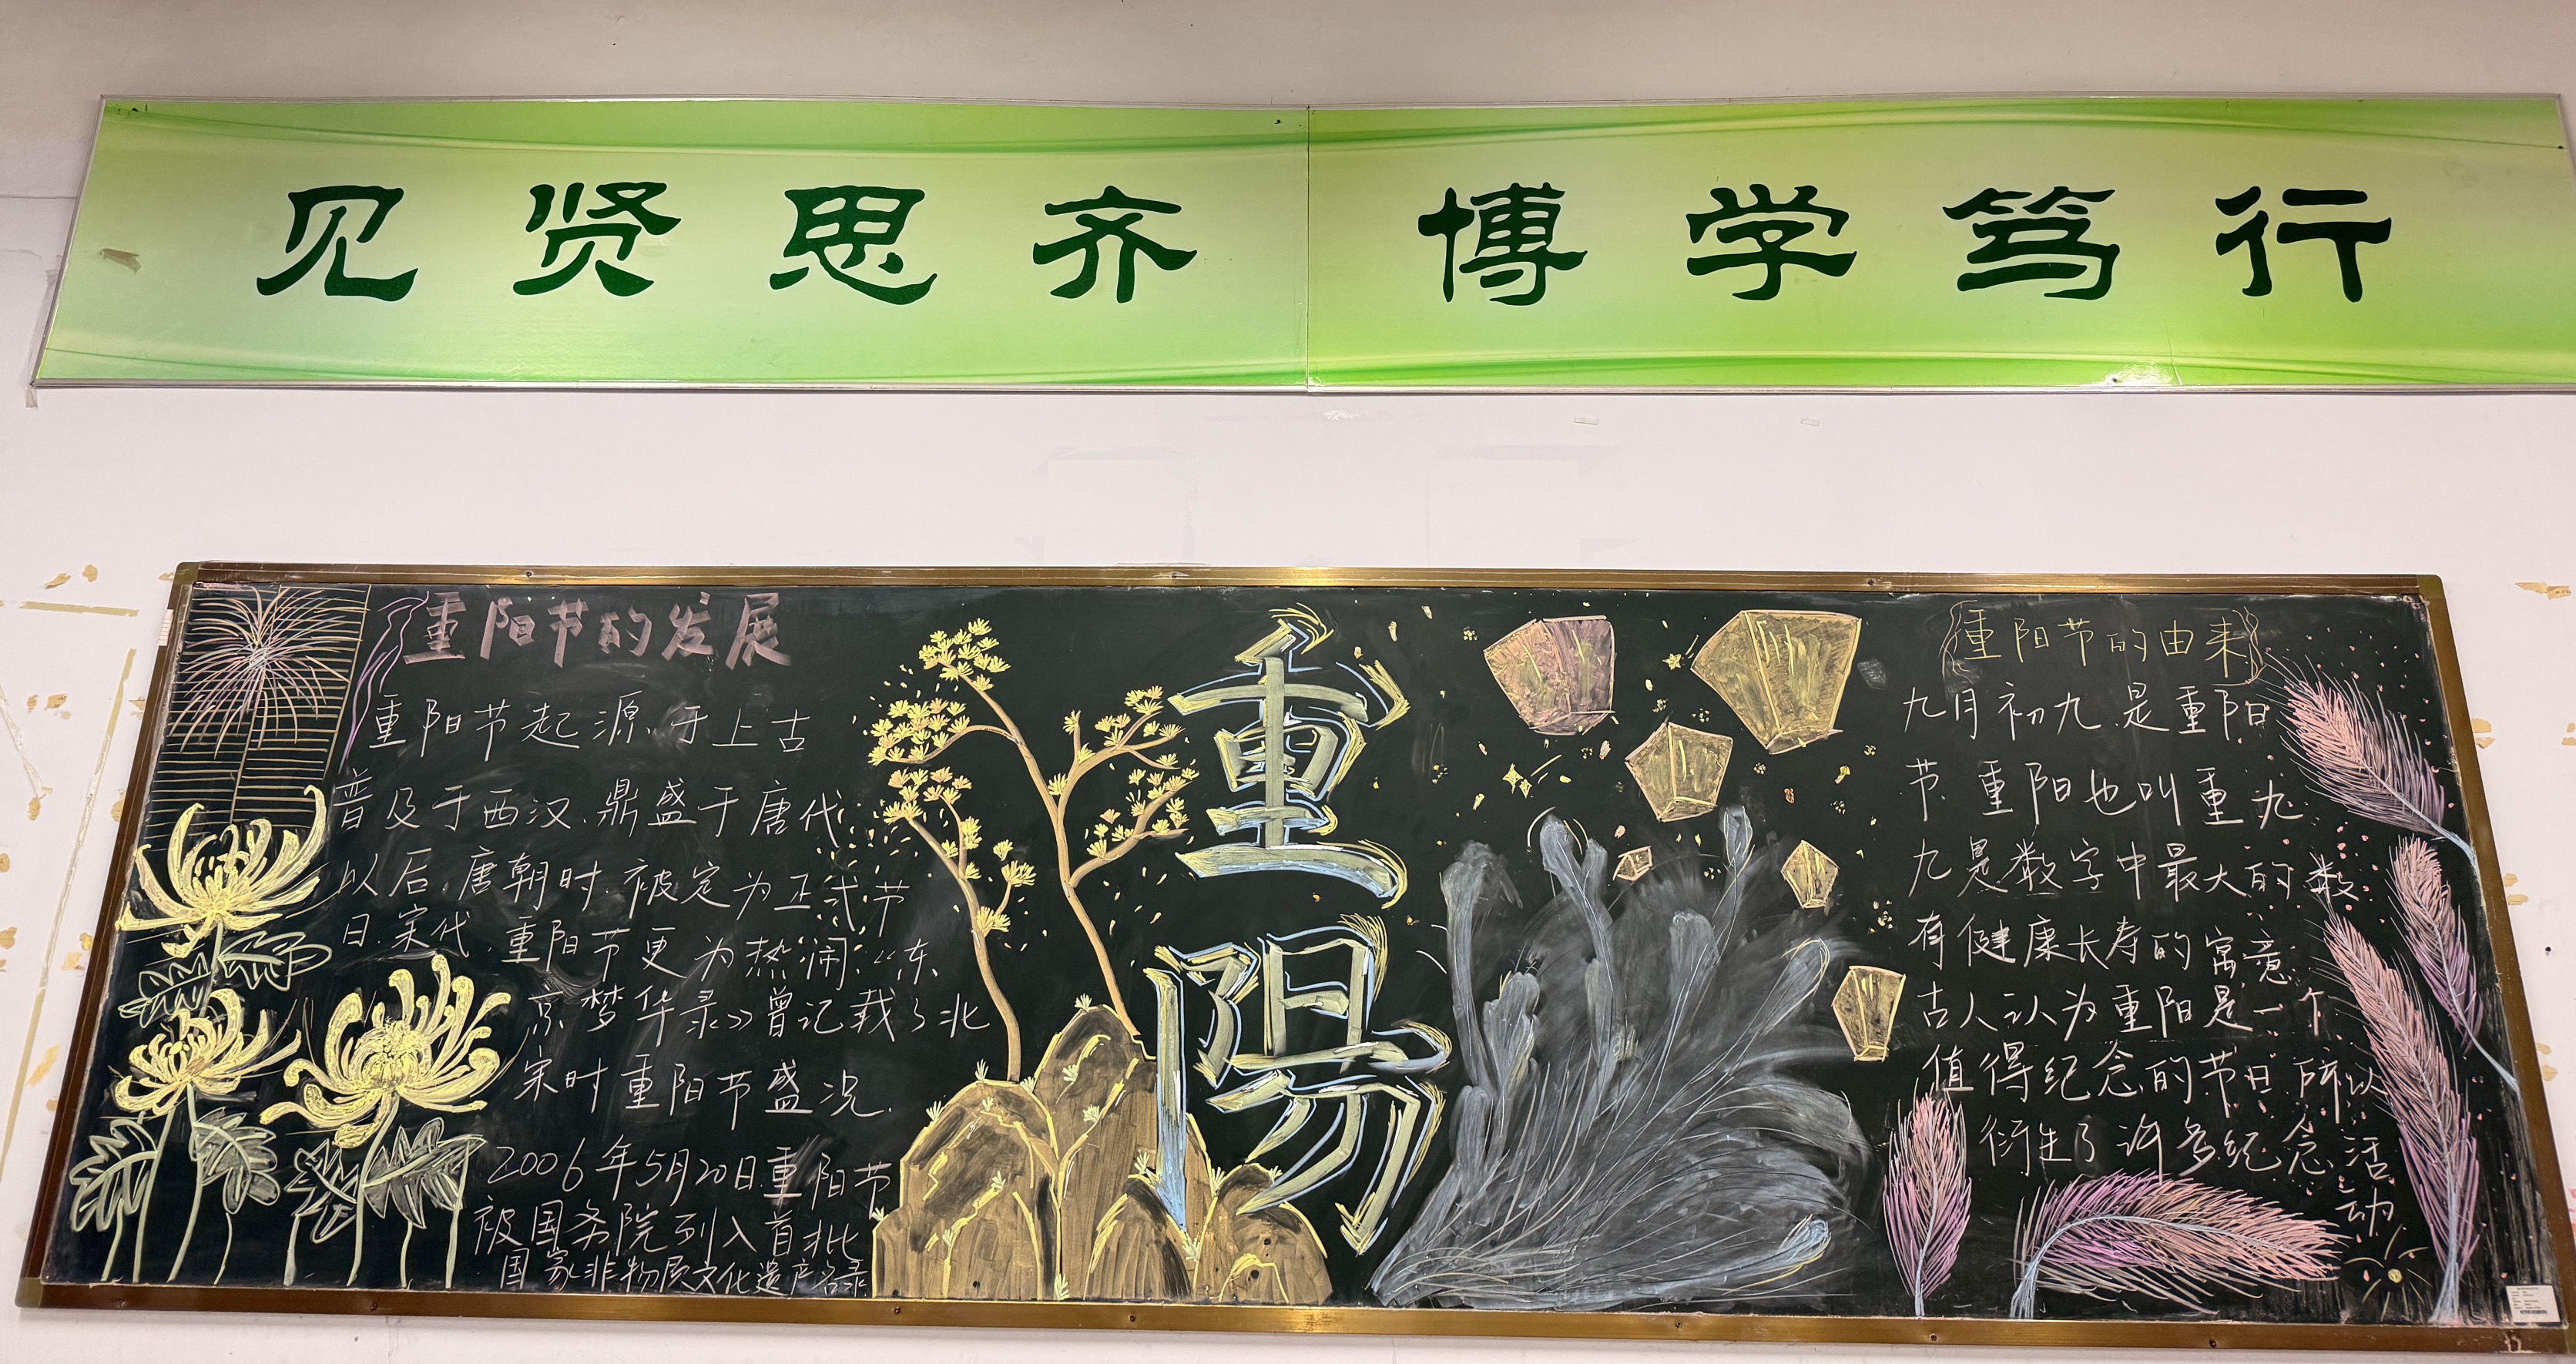 见贤思齐 博学笃行
重阳节的发展
重阳节起源于上古
普及于西汉.鼎盛于唐代
以后.唐朝时.被定为正式节
日.宋代 重阳节更为热闹.《东
京梦华录》曾记载了北
宋时重阳节盛况.
2006年5月20日重阳节
被国务院列入首批
国家非物质文化遗产名录
重
陽
重阳节的由来
九月初九.是重阳
节.重阳也叫重九
九是数字中最大的数
有健康长寿的寓意
古人认为重阳是一个
值得纪念的节日 所以
衍生了许多纪念活
动